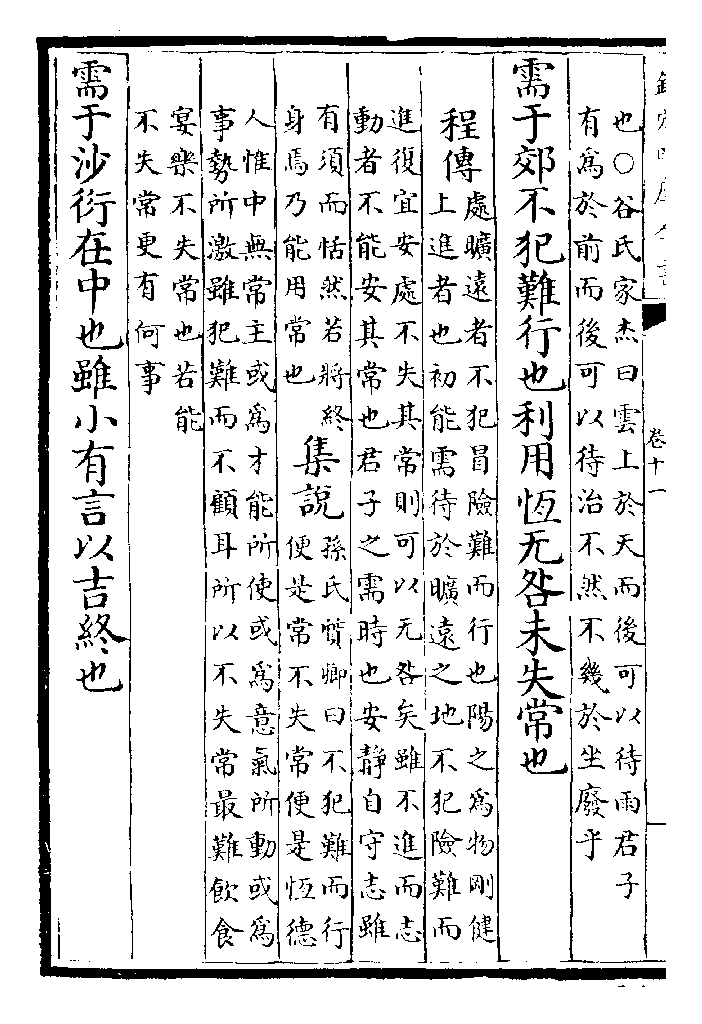 卷十一
也○谷氏家杰曰雲上於天而後可以待雨君子
有為於前而後可以待治不然不幾於坐廢乎
需于郊不犯難行也利用恆无咎未失常也
程傳
處曠遠者不犯冒險難而行也陽之為物剛健
上進者也初能需待於曠遠之地不犯險難而
進復宜安處不失其常則可以无咎矣雖不進而志
動者不能安其常也君子之需時也安靜自守志雖
有須而恬然若將終
身焉乃能用常也
集說
孫氏質卿曰不犯難而行
便是常不失常便是恆德
人惟中無常主或為才能所使或為意氣所動或為
事勢所激雖犯難而不顧耳所以不失常最難飲食
宴樂不失常也若能
不失常更有何事
需于沙衍在中也雖小有言以吉終也